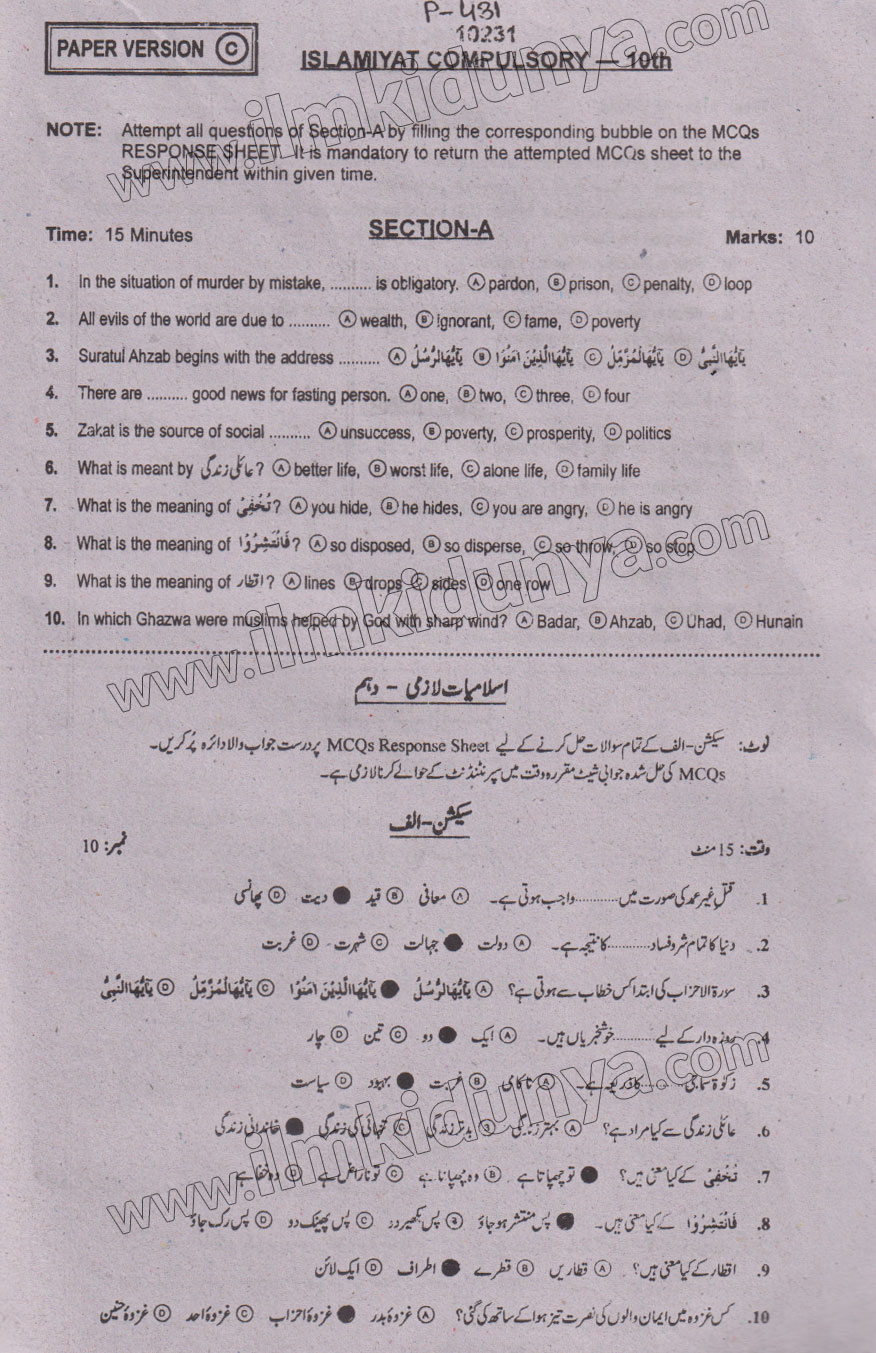 P-431
10231
PAPER VERSION Ⓒ
ISLAMIYAT COMPULSORY — 10th
www.ilmkidunya.com
NOTE: Attempt all questions of Section-A by filling the corresponding bubble on the MCQs
RESPONSE SHEET. It is mandatory to return the attempted MCQs sheet to the
Superintendent within given time.
Time: 15 Minutes SECTION-A Marks: 10
1. In the situation of murder by mistake, .......... is obligatory. Ⓐ pardon, Ⓑ prison, Ⓒ penalty, Ⓓ loop
2. All evils of the world are due to .......... Ⓐ wealth, Ⓑ ignorant, Ⓒ fame, Ⓓ poverty
3. Suratul Ahzab begins with the address .......... Ⓐ یٰٓاَیُّھَا الرُّسُلُ Ⓑ یٰٓاَیُّھَا الَّذِیْنَ اٰمَنُوْا Ⓒ یٰٓاَیُّھَا الْمُزَّمِّلُ Ⓓ یٰٓاَیُّھَا النَّبِیُّ
4. There are .......... good news for fasting person. Ⓐ one, Ⓑ two, Ⓒ three, Ⓓ four
5. Zakat is the source of social .......... Ⓐ unsuccess, Ⓑ poverty, Ⓒ prosperity, Ⓓ politics
6. What is meant by عائلی زندگی? Ⓐ better life, Ⓑ worst life, Ⓒ alone life, Ⓓ family life
7. What is the meaning of تُخْفِیْ? Ⓐ you hide, Ⓑ he hides, Ⓒ you are angry, Ⓓ he is angry
8. What is the meaning of فَانْتَشِرُوْا? Ⓐ so disposed, Ⓑ so disperse, Ⓒ so throw, Ⓓ so stop
9. What is the meaning of اقطار? Ⓐ lines Ⓑ drops Ⓒ sides Ⓓ one row
10. In which Ghazwa were muslims helped by God with sharp wind? Ⓐ Badar, Ⓑ Ahzab, Ⓒ Uhad, Ⓓ Hunain
www.ilmkidunya.com
اسلامیات لازمی - دہم
نوٹ: سیکشن-الف کے تمام سوالات حل کرنے کے لیے MCQs Response Sheet پر درست جواب والا دائرہ پُر کریں۔
MCQs کی حل شدہ جوابی شیٹ مقررہ وقت میں سپرنٹنڈنٹ کے حوالے کرنا لازمی ہے۔
سیکشن-الف
وقت: 15 منٹ نمبر: 10
1. قتل غیر عمد کی صورت میں ........... واجب ہوتی ہے۔ Ⓐ معافی Ⓑ قید ● دیت Ⓓ پھانسی
2. دنیا کا تمام شر و فساد ........... کا نتیجہ ہے۔ Ⓐ دولت ● جہالت Ⓒ شہرت Ⓓ غربت
3. سورۃ الاحزاب کی ابتدا کس خطاب سے ہوتی ہے؟ Ⓐ یٰٓاَیُّھَا الرُّسُلُ ● یٰٓاَیُّھَا الَّذِیْنَ اٰمَنُوْا Ⓒ یٰٓاَیُّھَا الْمُزَّمِّلُ Ⓓ یٰٓاَیُّھَا النَّبِیُّ
4. روزہ دار کے لیے ........... خوشخبریاں ہیں۔ Ⓐ ایک ● دو Ⓒ تین Ⓓ چار
5. زکوٰۃ سماجی ........... کا ذریعہ ہے۔ Ⓐ ناکامی Ⓑ غربت ● بہبود Ⓓ سیاست
6. عائلی زندگی سے کیا مراد ہے؟ Ⓐ بہتر زندگی Ⓑ بدتر زندگی Ⓒ تنہائی کی زندگی ● خاندانی زندگی
7. تُخْفِیْ کے کیا معنی ہیں؟ ● تو چھپاتا ہے Ⓑ وہ چھپاتا ہے Ⓒ تو ناراض ہے Ⓓ وہ خفا ہے
8. فَانْتَشِرُوْا کے کیا معنی ہیں۔ ● پس منتشر ہو جاؤ Ⓑ پس بکھیر دو Ⓒ پس پھینک دو Ⓓ پس رک جاؤ
9. اقطار کے کیا معنی ہیں؟ Ⓐ قطاریں Ⓑ قطرے ● اطراف Ⓓ ایک لائن
10. کس غزوہ میں ایمان والوں کی نصرت تیز ہوا کے ساتھ کی گئی؟ Ⓐ غزوۂ بدر ● غزوۂ احزاب Ⓒ غزوۂ احد Ⓓ غزوۂ حنین
www.ilmkidunya.com